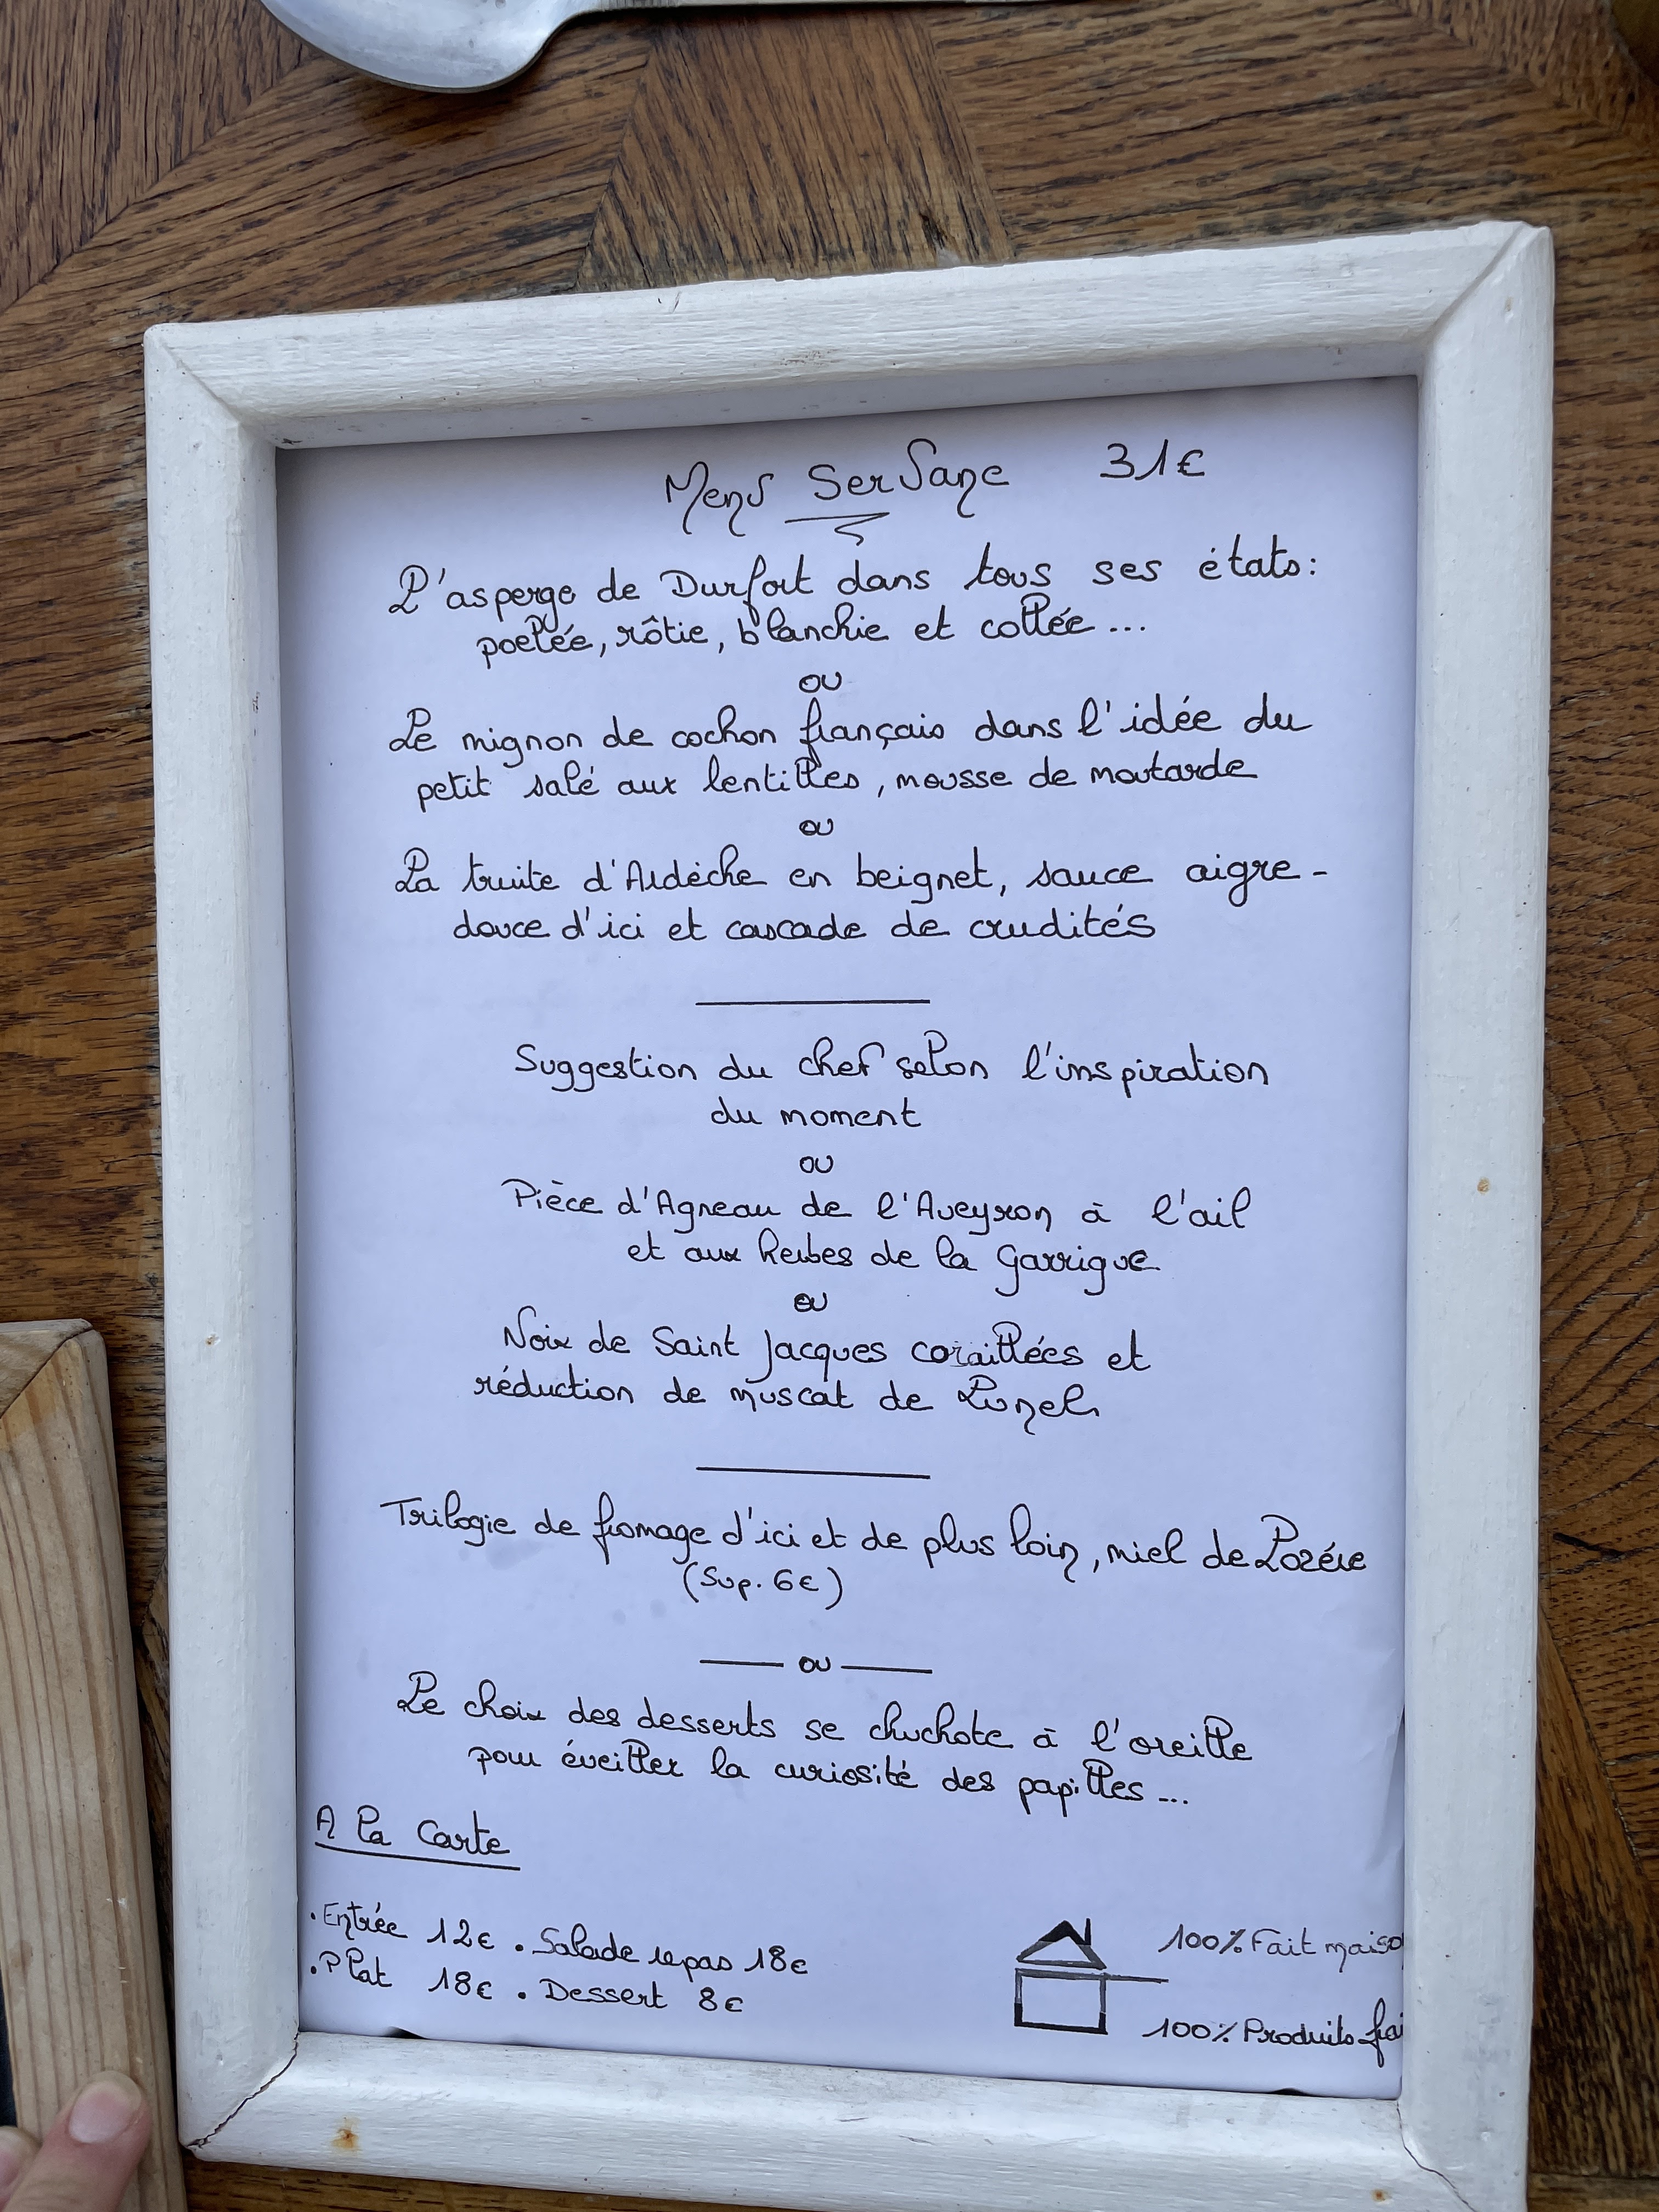 Menu Servane 31€
L'asperge de Durfort dans tous ses états:
poelée, rôtie, blanchie et collée...
ou
Le mignon de cochon français dans l'idée du
petit salé aux lentilles, mousse de moutarde
ou
La truite d'Ardèche en beignet, sauce aigre-
douce d'ici et cascade de crudités
Suggestion du chef selon l'inspiration
du moment
ou
Pièce d'Agneau de l'Aveyron à l'ail
et aux herbes de la Garrigue
ou
Noix de Saint Jacques coraillées et
réduction de muscat de Lunel
Trilogie de fromage d'ici et de plus loin, miel de Lozére
(Sup. 6€)
ou
Le choix des desserts se chuchote à l'oreille
pour éveiller la curiosité des papilles...
A la Carte
• Entrée 12€ • Salade repas 18€
• Plat 18€ • Dessert 8€
100% Fait maiso
100% Produits frai